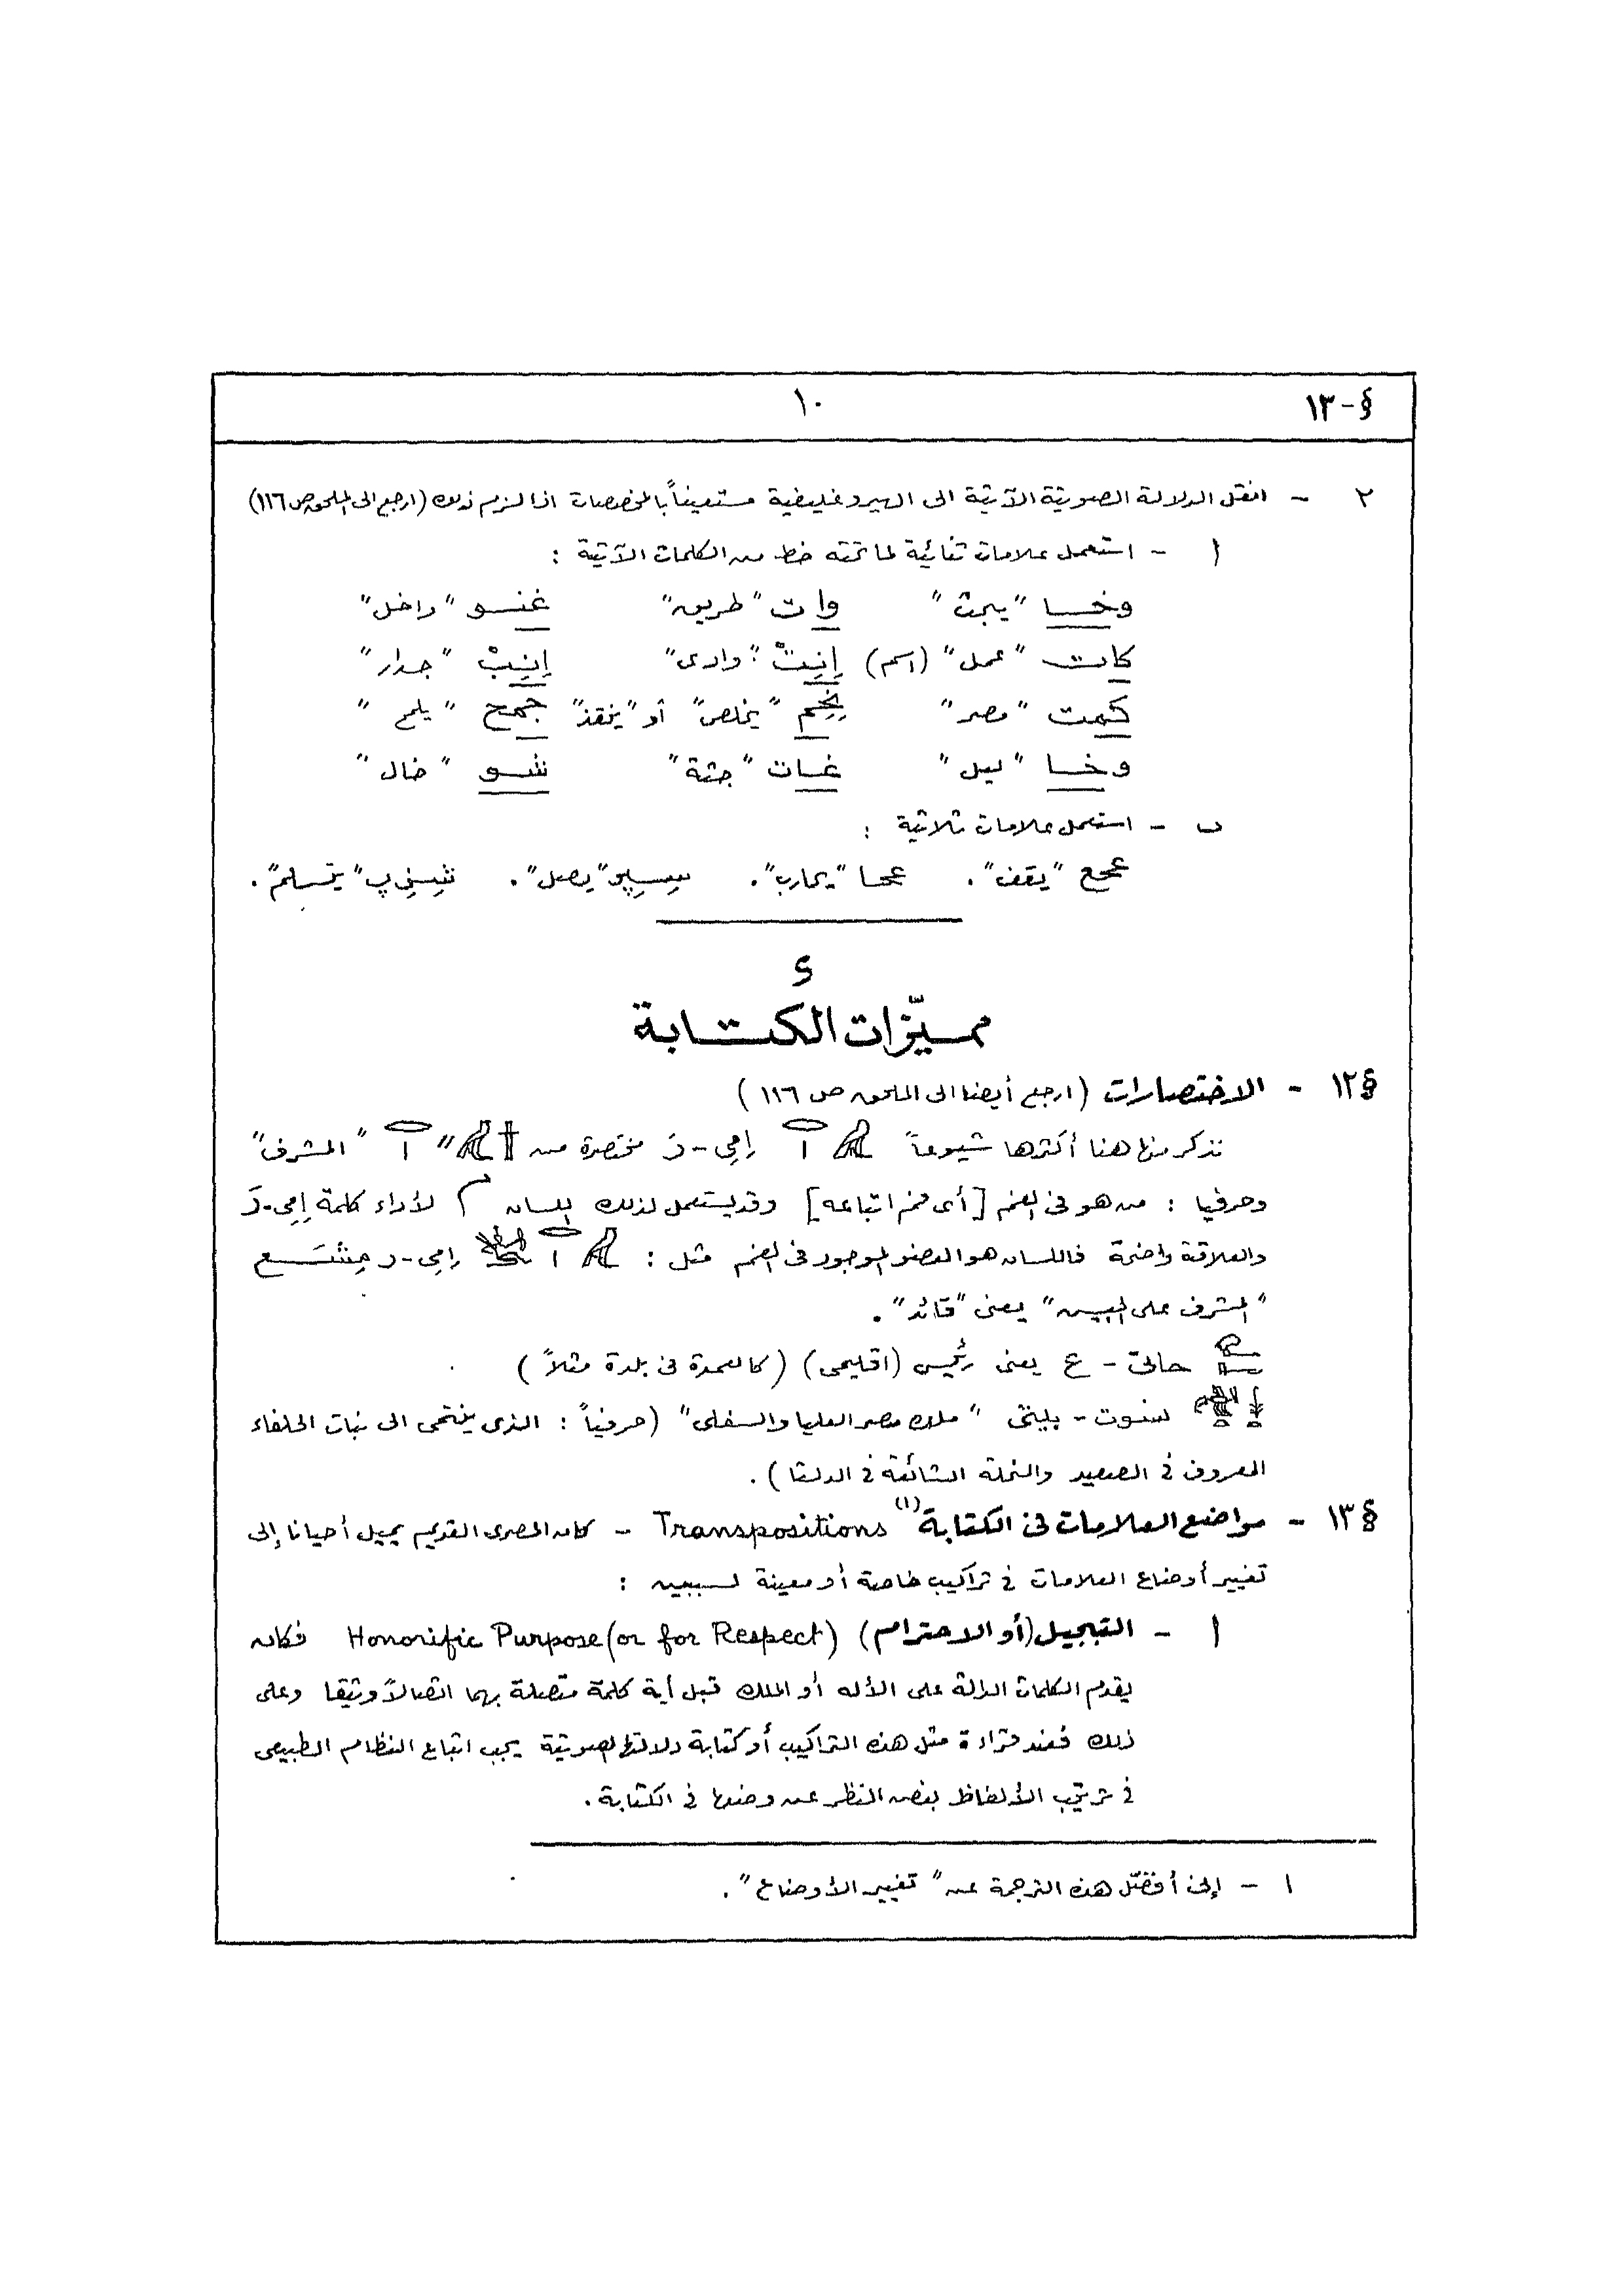 §-١٣
١٠
٢ - انقل الدلالة الصوتية الآتية الى الهيروغليفية مستعيناً بالمخصصات اذا لزم ذلك (ارجع الى الملحق ص ١١٦)
أ - استعمل علامات ثنائية لما تحته خط من الكلمات الآتية :
وخــا "يبحث" وات "طريق" غنـو "داخل"
كات "عمل" (اسم) إنِتْ "وادى" إنِبْ "جدار"
كمت "مصر" "يخلص" أو "ينقذ" جمح "يلمح"
وخــا "ليل" غــات "جثة" شــو "خال"
ب - استعمل علامات ثلاثية :
عحع "يقف". عحــا "يحارب". "يصل". "يتسلم".
و
مميّزات الكتــابة
§١٢ - الاختصارات (ارجع أيضا الى الملحق ص ١١٦)
نذكر منها هنا أكثرها شيوعاً إمِي-رَ مختصرة من "المشرف"
وحرفيا : من هو فى الفم [أى فم اتباعه] وقد يستعمل لذلك اللسان لأداء كلمة إمِي-رَ
والعلاقة واضحة فاللسان هو العضو الموجود فى الفم مثل : إمِي-ر مِشَــع
"المشرف على الجيش" يعنى "قائد".
حاتى - ع يعنى رئيس (اقليمى) (كالعمدة فى بلدة مثلاً)
"ملك مصر العليا والسفلى" (حرفياً : الذى ينتمى الى نبات الحلفاء
المعروف فى الصعيد والنحلة الشائعة فى الدلتا).
§١٣ - مواضع العلامات فى الكتابة(١) Transpositions - كان المصرى القديم يميل أحيانا إلى
تغيير أوضاع العلامات فى تراكيب خاصة أو معينة لسببين :
أ - التبجيل (أو الاحترام) Honorific Purpose (or for Respect) فكان
يقدم الكلمات الدالة على الأله أو الملك قبل أية كلمة متصلة بهما اتصالاً وثيقا وعلى
ذلك فعند قراءة مثل هذه التراكيب أو كتابة دلالتها الصوتية يجب اتباع النظام الطبيعى
فى ترتيب الألفاظ بغض النظر عن وضعها فى الكتابة.
١ - إنى أفضّل هذه الترجمة عن "تغيير الأوضاع".